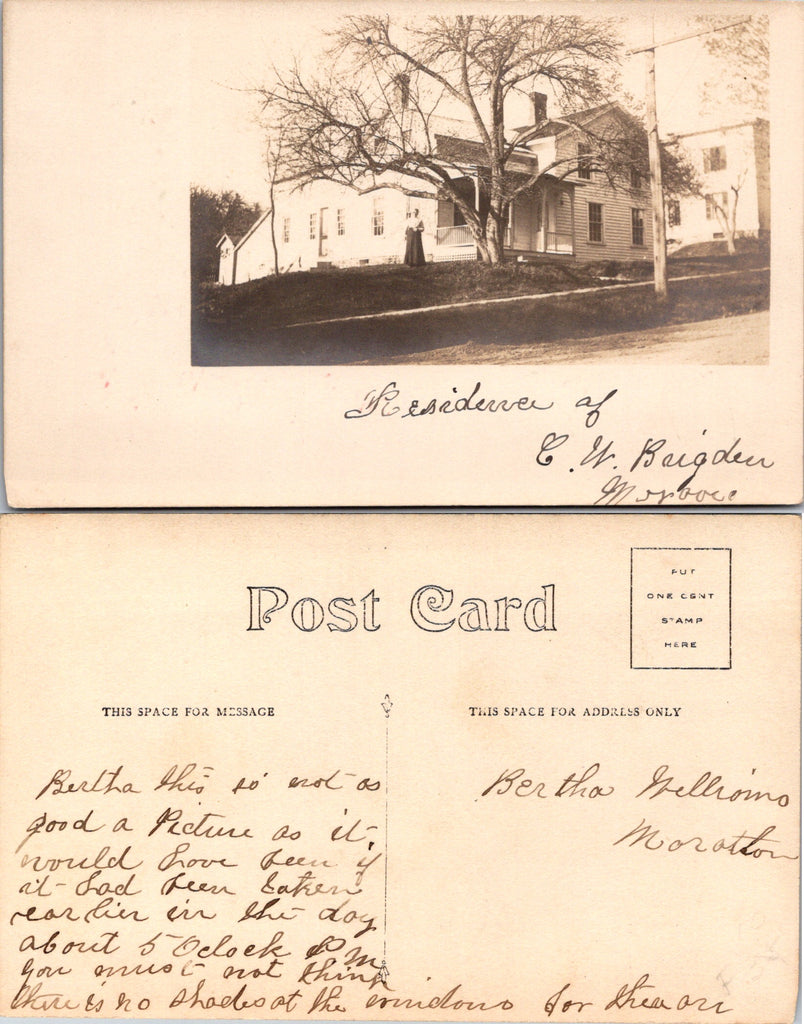 Residence of
C. W. Brigden
Post Card
PUT
ONE CENT
STAMP
HERE
THIS SPACE FOR MESSAGE
THIS SPACE FOR ADDRESS ONLY
Bertha this is not as
good a Picture as it
would have been if
it had been taken
earlier in the day
about 5 Oclock P M
you must not think
there is no shades at the windows for there are
Bertha Williams